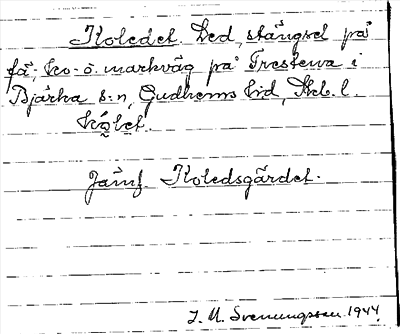 Koledet. Led, stängsel på
fä-, ko- o. markväg på Trestena i
Bjärka s:n, Gudhems hd, Skb. l.
Jämf. Koledsgärdet.
J. M. Svenungsson. 1944.